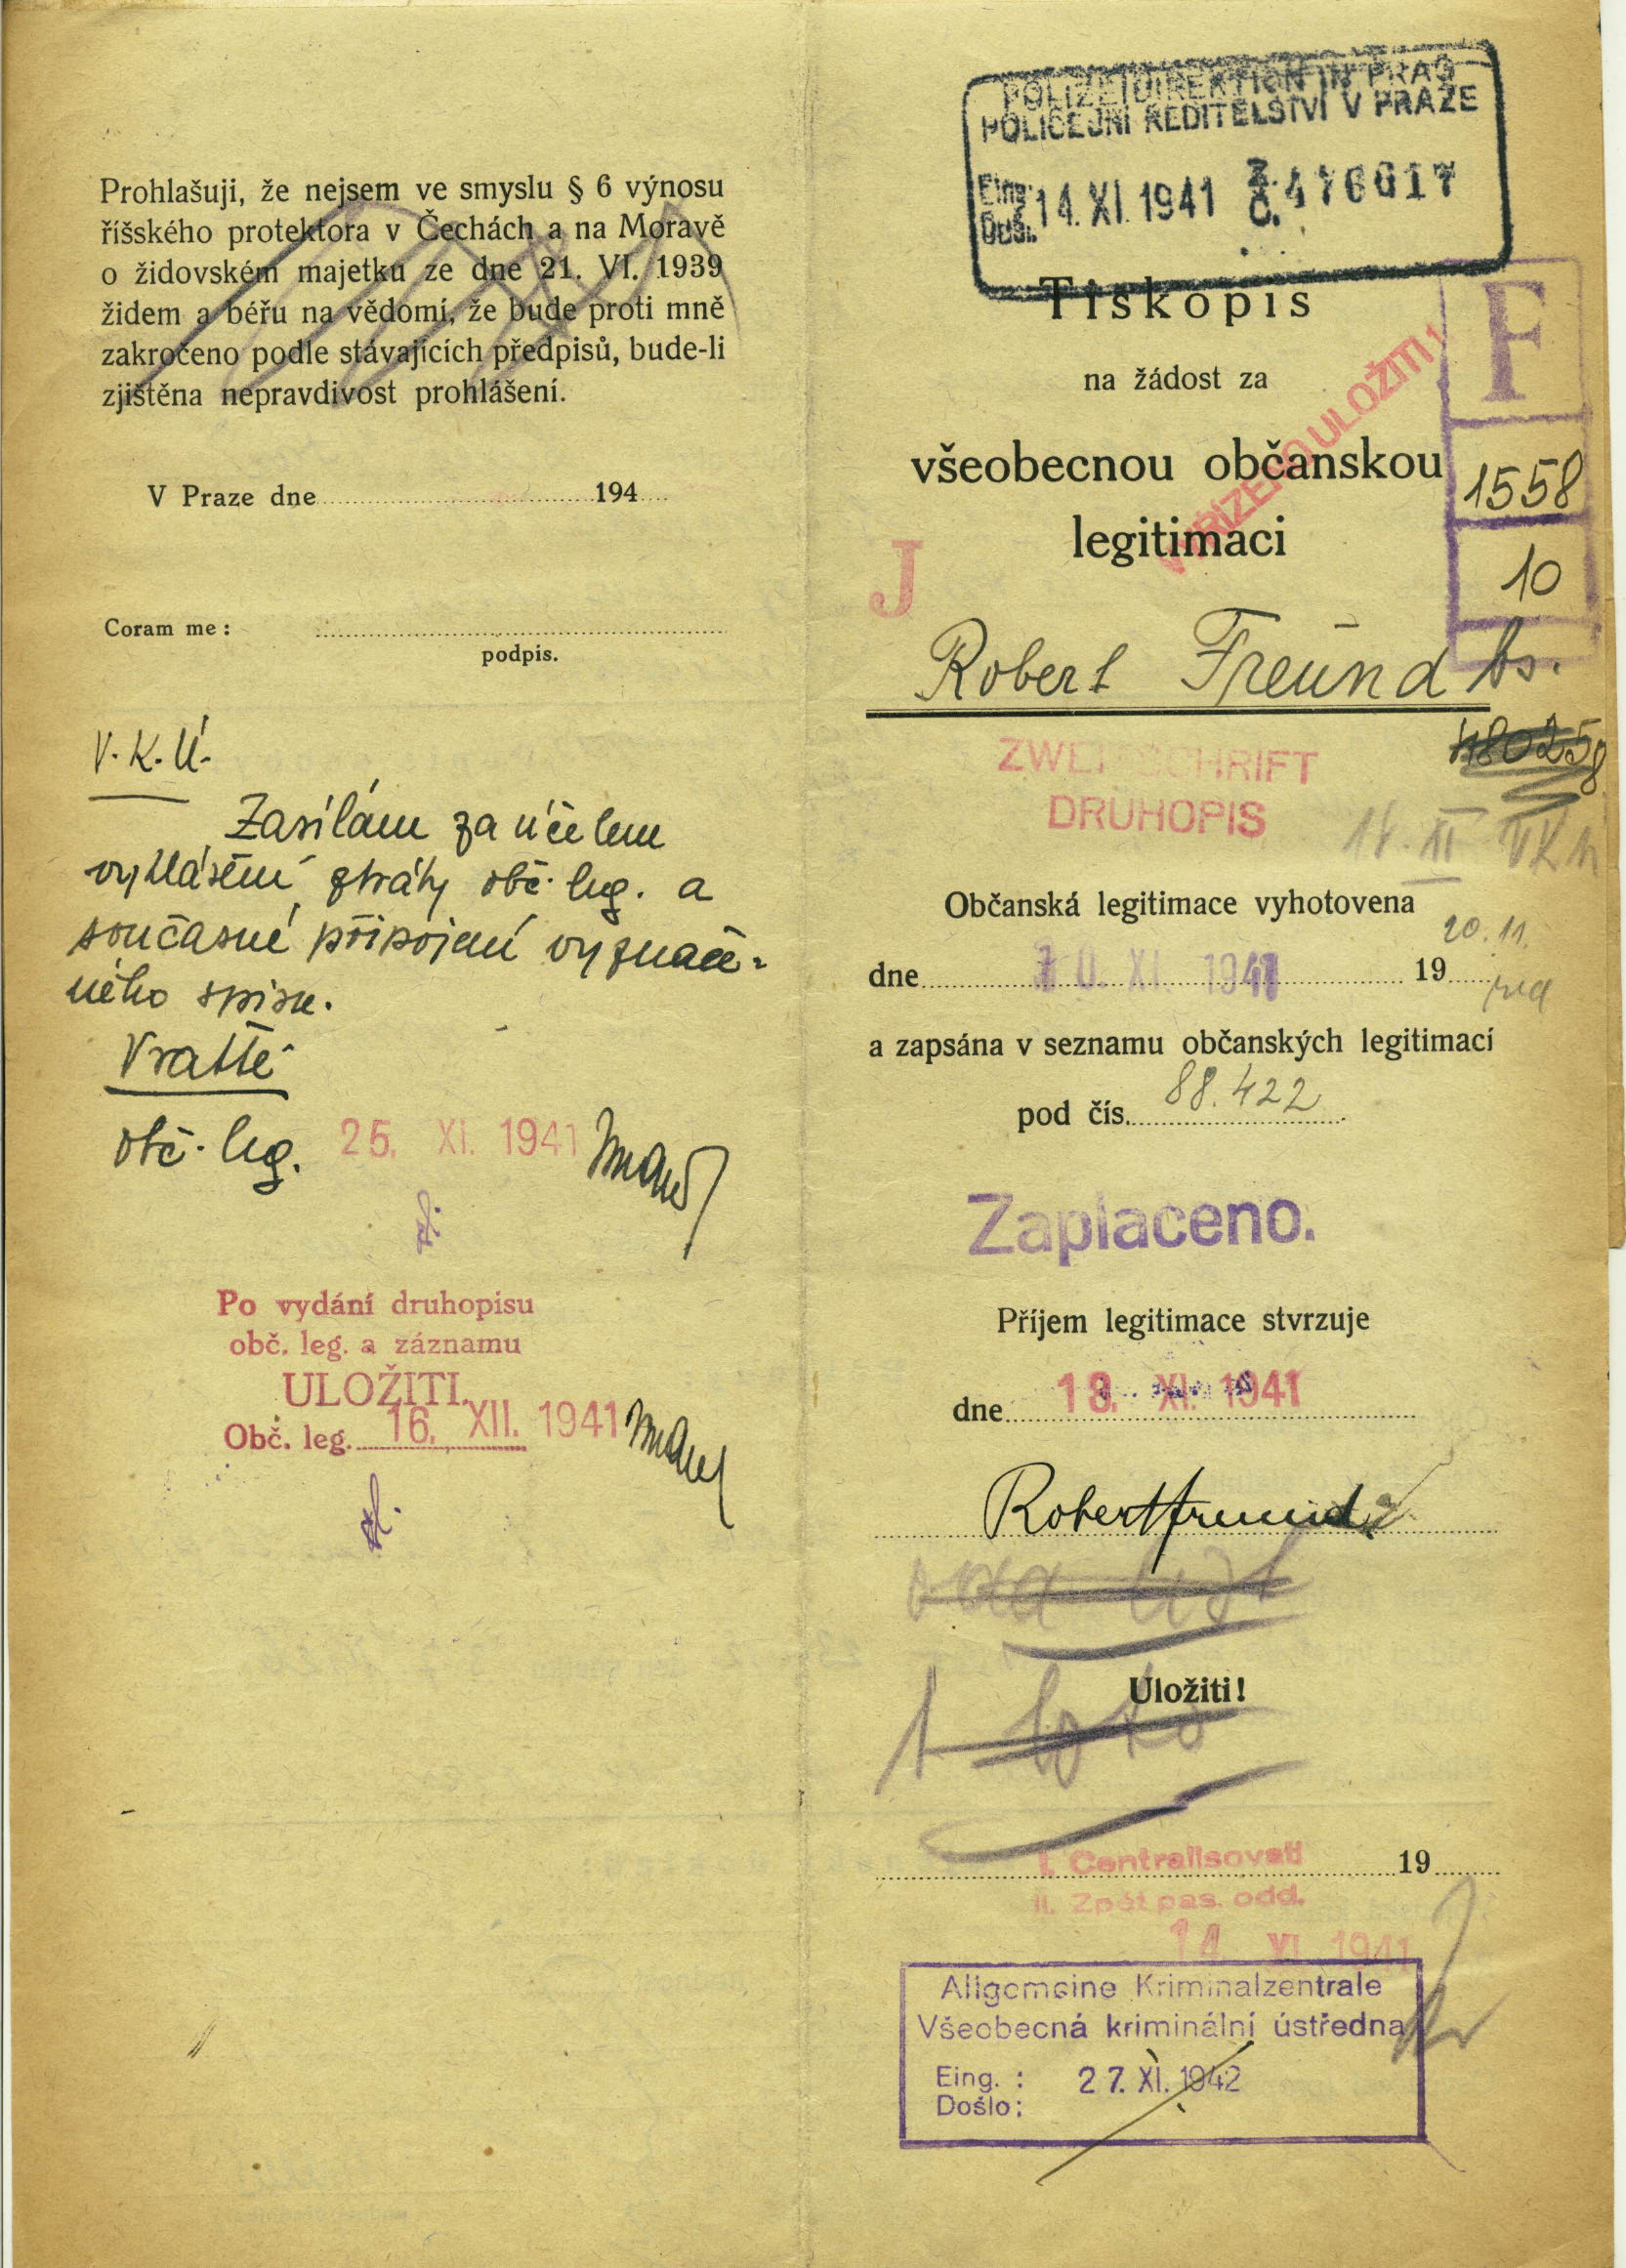 Prohlašuji, že nejsem ve smyslu § 6 výnosu
říšského protektora v Čechách a na Moravě
o židovském majetku ze dne 21. VI. 1939
židem a béřu na vědomí, že bude proti mně
zakročeno podle stávajících předpisů, bude-li
zjištěna nepravdivost prohlášení.
V Praze dne 194
Coram me:
podpis.
V. K. Ú.
Zasílám za účelem
vyhlášení ztráty obč. leg. a
současné připojení vyznače-
ného spisu.
Vraťte
obč. leg. 25. XI. 1941
Po vydání druhopisu
obč. leg. a záznamu
ULOŽITI.
Obč. leg. 16. XII. 1941
POLIZEIDIREKTION IN PRAG
POLICEJNÍ ŘEDITELSTVÍ V PRAZE
Eing. Došl. 14. XI. 1941 Z. Č. 476617
Tiskopis
na žádost za
všeobecnou občanskou
legitimaci
VYŘÍZENO ULOŽITI!
F
1558
10
J
Robert Freund
48025
ZWEITSCHRIFT
DRUHOPIS
Občanská legitimace vyhotovena
20. 11.
dne 20. XI. 1941 19
a zapsána v seznamu občanských legitimací
pod čís. 88.422
Zaplaceno.
Příjem legitimace stvrzuje
dne 18. XI. 1941
Robert Freund
Uložiti!
1 foto
19
I. Centralisovati
II. Zpět pas. odd.
14. XI. 1941
Allgemeine Kriminalzentrale
Všeobecná kriminální ústředna
Eing.: 27. XI. 1942
Došlo: